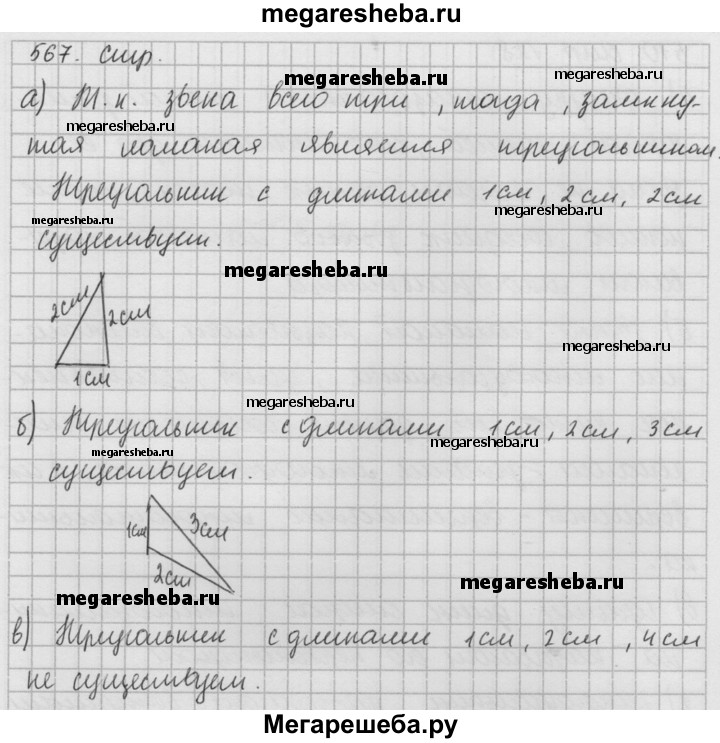 megaresheba.ru
567. стр.
megaresheba.ru
megaresheba.ru
а) Т.к. звена всего три, тогда, замкну-
megaresheba.ru
тая ломаная является треугольником.
Треугольник с длинами 1см, 2см, 2см
megaresheba.ru
megaresheba.ru
существует.
megaresheba.ru
2см
2см
megaresheba.ru
1см
megaresheba.ru
б) Треугольник с длинами 1см, 2см, 3см
megaresheba.ru
megaresheba.ru
существует.
1см
3см
2см
megaresheba.ru
megaresheba.ru
в) Треугольник с длинами 1см, 2см, 4см
не существует.
Мегарешеба.ру